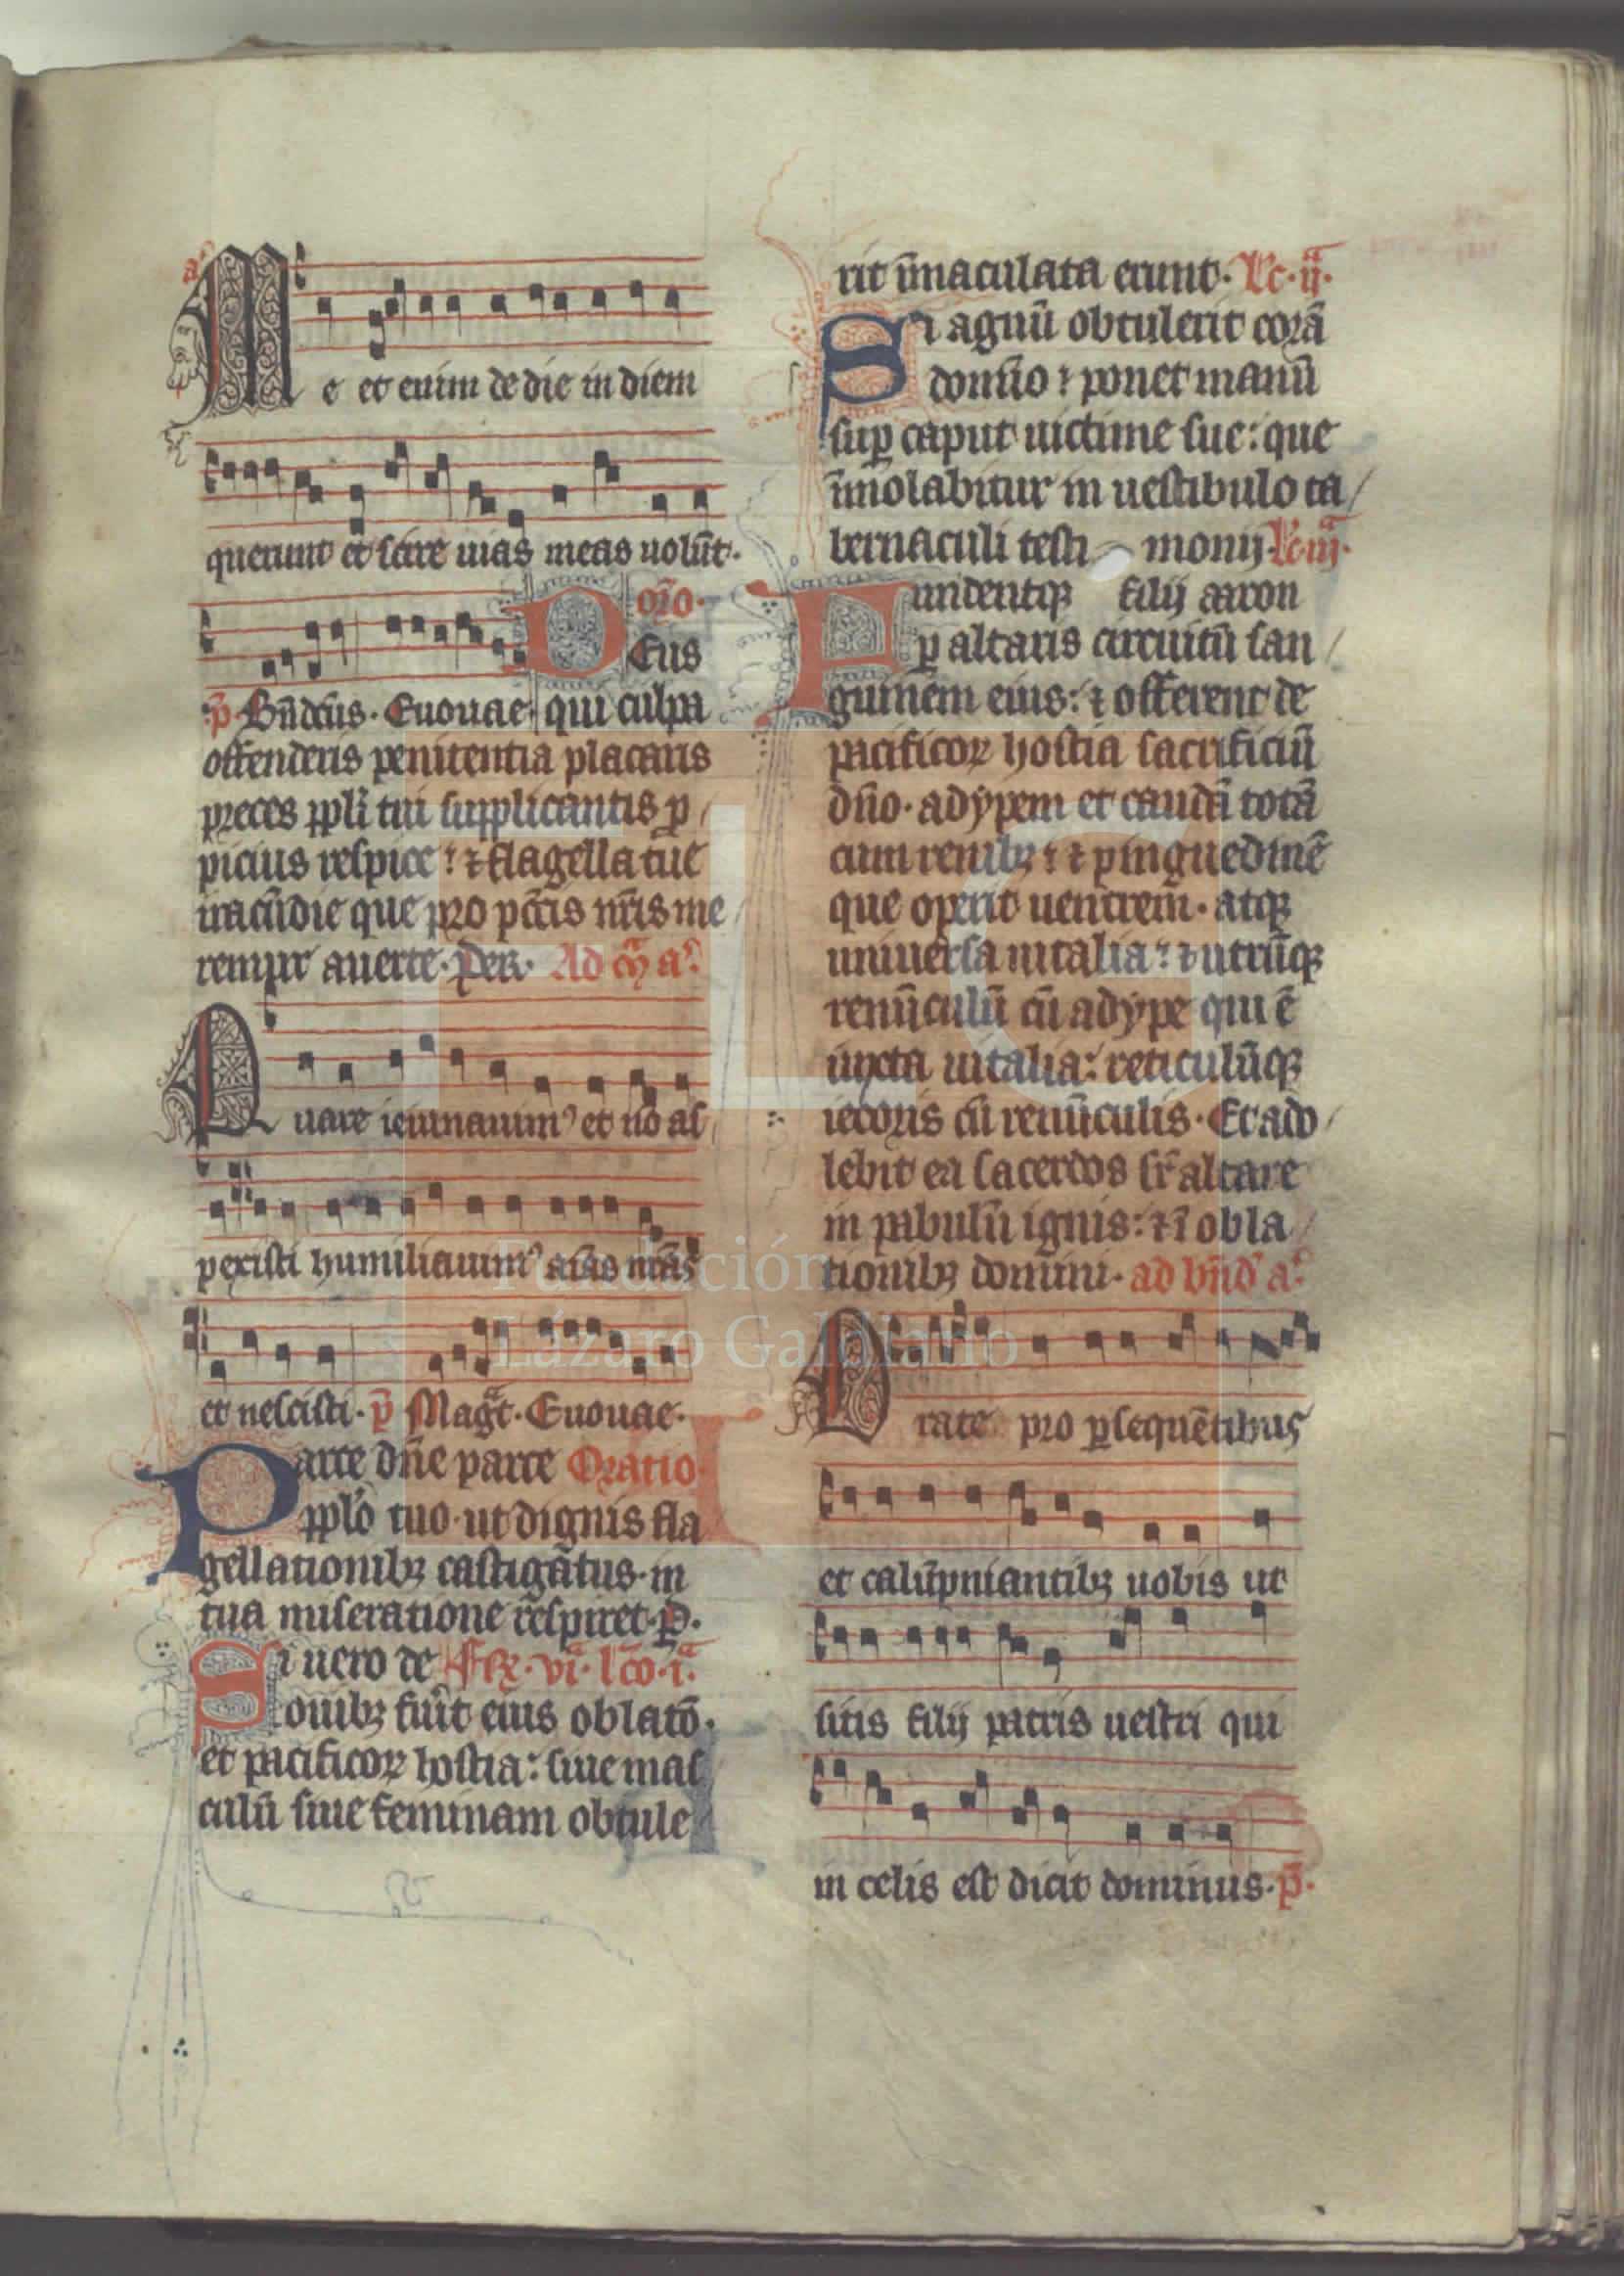 a᷒
Me et enim de die in diem
querunt et scire uias meas uolūt.
oro͞.
Deus
p̄. Bn̄dcūs. Euouae. qui culpa
offenderis penitentia placaris
preces ppl̄i tui supplicantis ꝓ
picius respice: ⁊ flagella tue
iracūdie que pro pctīs nrīs me
remur auerte. Per. Ad m̄ a᷒.
Quare ieiunauim᷒ et nō as
pexisti humiliauim᷒ aīas nrās
et nescisti. p̄ Magt̄. Euouae.
Parce dn̄e parce Oratio.
ppl̄o tuo. ut dignis fla
gellationibꝫ castigātus. in
tua miseratione respiret. P.
Si uero de Fr̄. vi. lcō. i.
ouibꝫ fūit eius oblatō.
et pacificoꝝ hostia: siue mas
culū siue feminam obtule
rit īmaculata erunt. Lc. ij.
Si agnū obtulerit corā
domīo ⁊ ponet manū
suꝑ caput uictime sue: que
īmolabitur in uestibulo ta
bernaculi testi monij. Lc. iij.
Fundentqꝫ filij aaron
ꝑ altaris circuitū san
guinem eius: ⁊ offerent de
pacificoꝝ hostia sacrificiū
dn̄o. adypem et caudā totā
cum renibꝫ: ⁊ pinguedinē
que operit uentrem. atqꝫ
uniuersa uitalia: ⁊ utrūqꝫ
renūculū cū adype qui ē
iuxta uitalia: reticulūqꝫ
iecoris cū renūculis. Et ado
lebit ea sacerdos sr̄ altare
in pabulū ignis: ⁊ ī obla
tionibꝫ domini. ad bn̄d᷒ a᷒.
Orate pro ꝑsequētibus
et calūpniantibꝫ uobis ut
sitis filij patris uestri qui
in celis est dicit dominus. p̄.
Fundación
Lázaro Galdiano